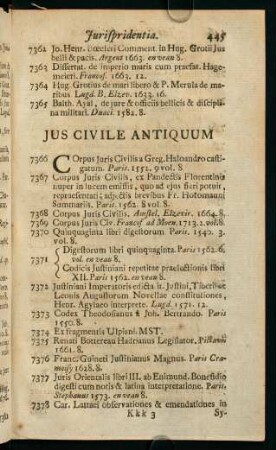 Jurisprudentia. 445
7362 Jo. Henr. Bœcleri Comment. in Hug. Grotii Jus
belli & pacis. Argent 1663. en veau 8.
7363 Dissertat. de imperio maris cum præfat. Hage-
meieri. Francof. 1663. 12.
7364 Hug. Grotius de mari libero & P. Merula de ma-
ribus Lugd. B. Elzev. 1633. 16.
7365 Balth. Ayal, de jure & officiis bellicis & discipli-
na militari. Duaci. 1582. 8.
JUS CIVILE ANTIQUUM
7366 Corpus Juris Civilis a Greg. Haloandro casti-
gatum. Paris. 1552. 9 vol. 8.
7367 Corpus Juris Civilis, ex Pandectis Florentinis
nuper in lucem emissis, quo ad ejus fieri potuit,
repræsentari; adjectis brevibus Fr. Hotomanni
Summariis. Paris 1562. 8 vol. 8.
7368 Corpus Juris Civilis, Amstel. Elzevir. 1664. 8.
7369 Corpus Juris Civ. Francof ad Moen. 1713. 2. vol. 8.
7370 Quinquaginta libri digestorum Paris. 1540. 3.
vol. 8.
7371 Digestorum libri quinquaginta Paris 1562. 6.
vol. en veau 8.
Codicis Justiniani repetitæ prælectionis libri
XII. Paris 1562. en veau 8.
7372 Justiniani Imperatoris edicta it. Justini, Tiberii
Leonis Augustorum Novellæ constitutiones,
Henr. Agylæo interprete. Lugd. 1571. 12.
7373 Codex Theodosianus à Joh. Bertrando. Paris
1550. 8.
7374 Ex fragmentis Ulpiani. MST.
7375 Renati Bottereau Hadrianus Legislator. Pictavii
1661. 8.
7376 Franc. Guineti Justinianus Magnus. Paris Cra-
moisy 1628. 8.
7377 Juris Orientalis libri III. ab Enimund. Bonefidio
digesti cum notis & latina interpretatione. Paris.
Stephanus 1573. en veau 8.
7378 Car. Labbæi observationes & emendationes in
Kkk 3 Sy-